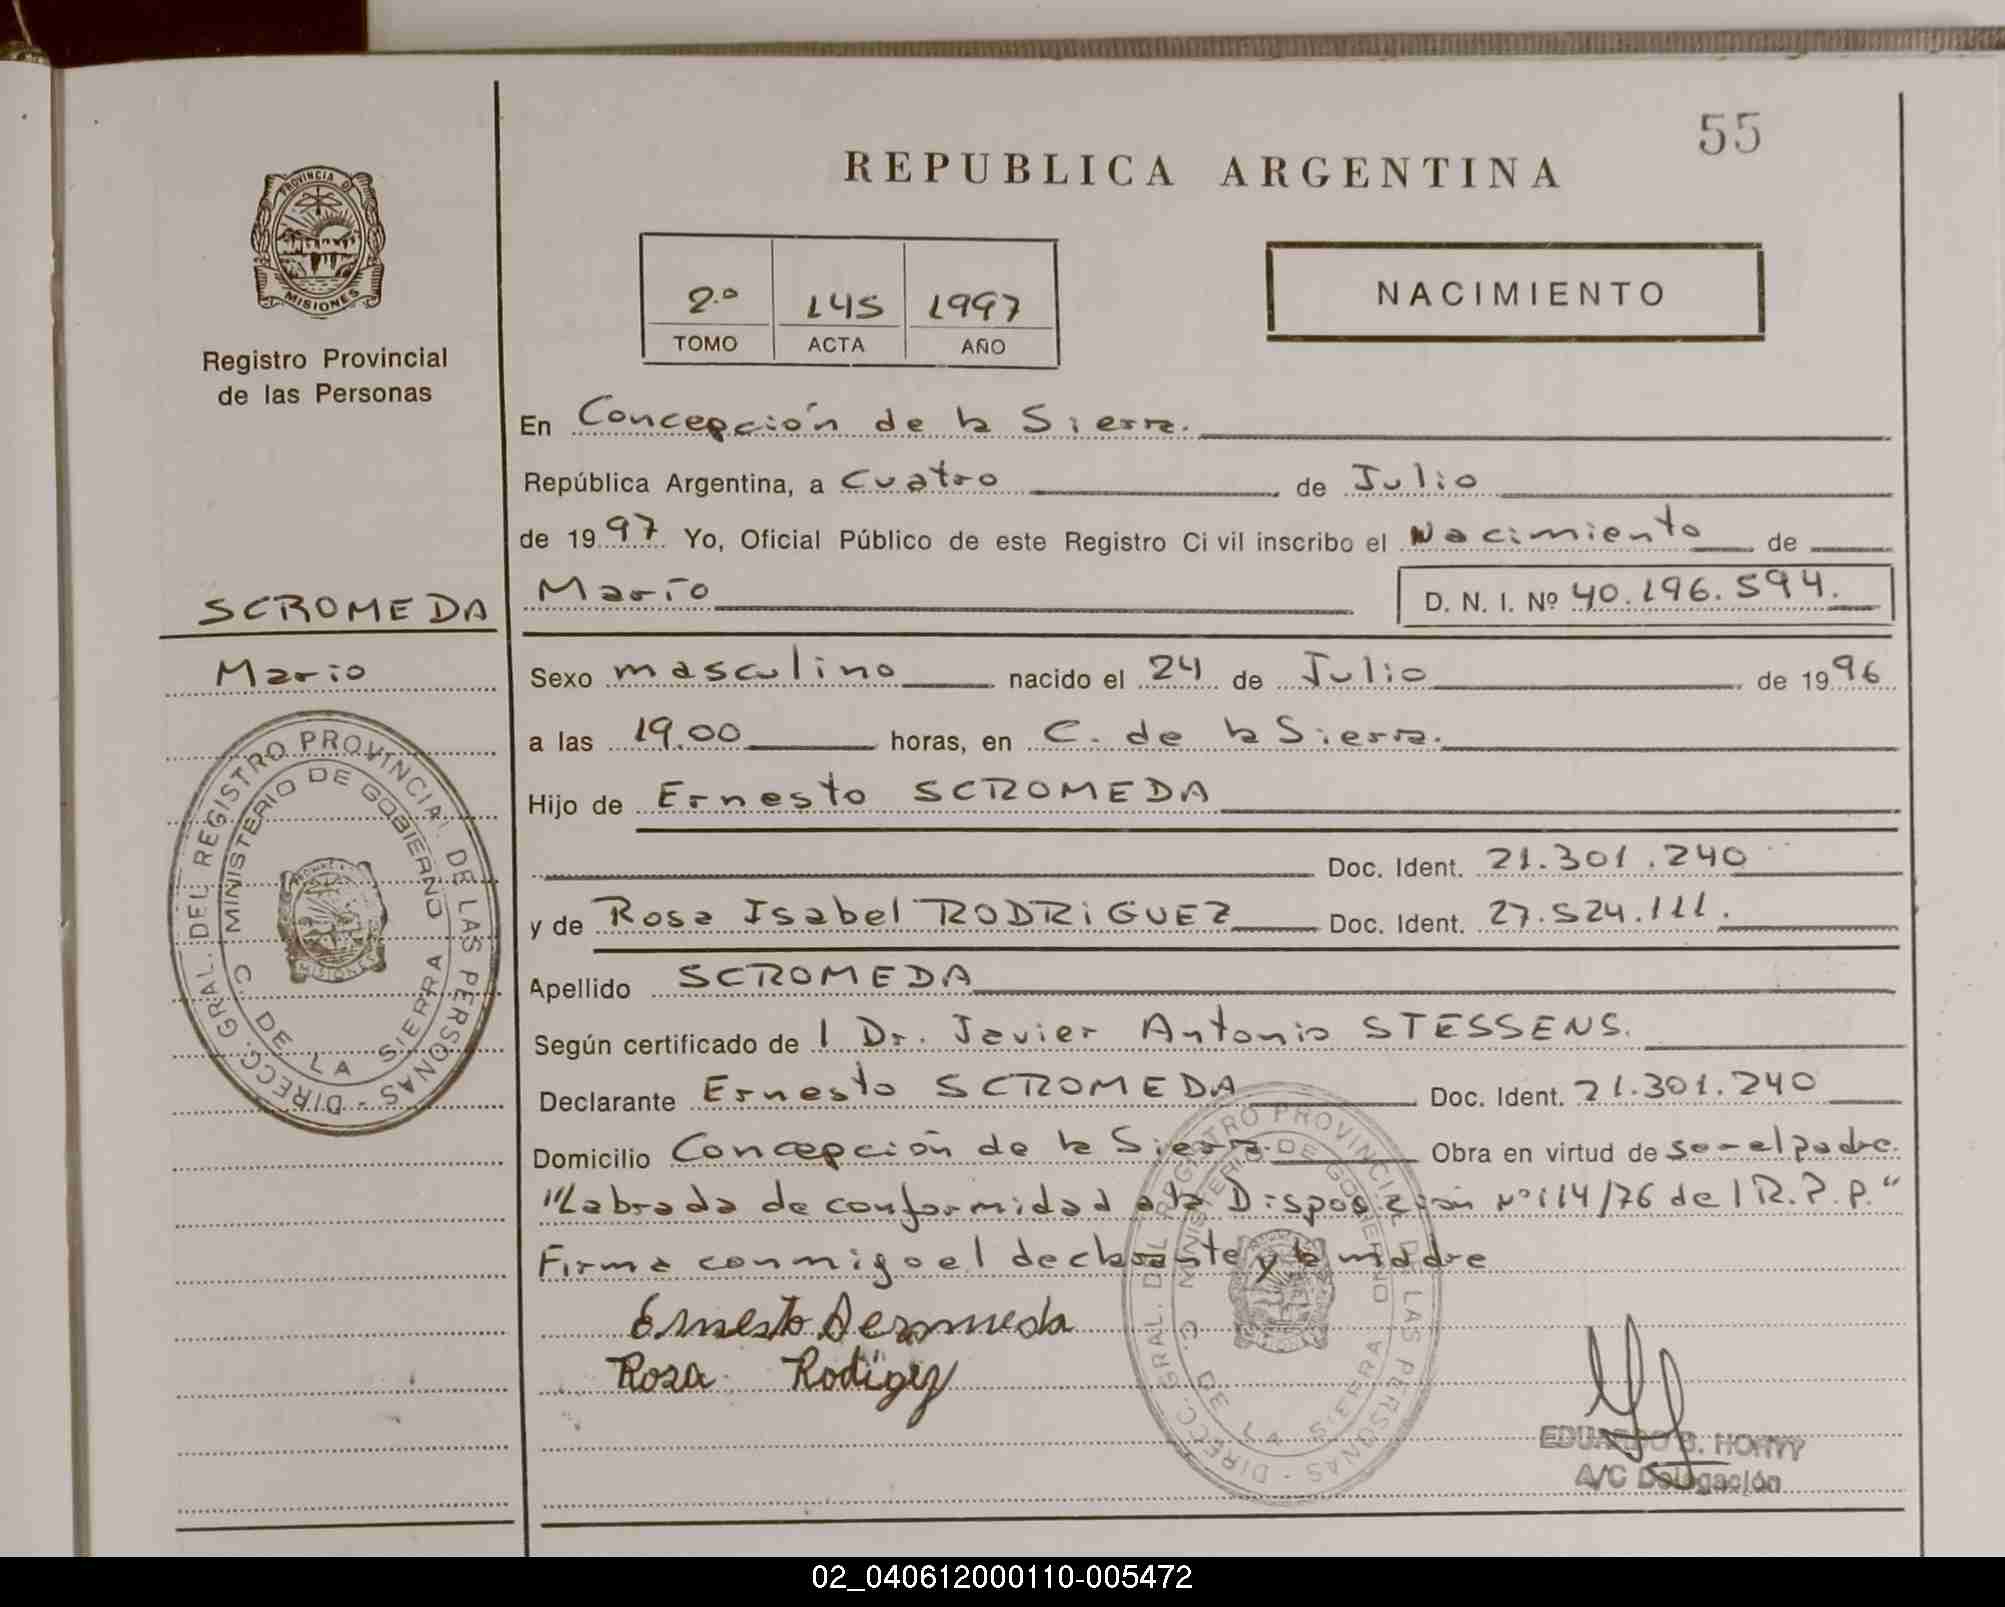 55
REPUBLICA ARGENTINA
PROVINCIA D
MISIONES
Registro Provincial
de las Personas
2.º 145 1997
TOMO ACTA AÑO
NACIMIENTO
En Concepción de la Sierra.
República Argentina, a Cuatro de Julio
de 1997 Yo, Oficial Público de este Registro Civil inscribo el Nacimiento de
Mario D. N. I. Nº 40.196.594.
SCROMEDA
Mario
Sexo masculino nacido el 24 de Julio de 1996
a las 19.00 horas, en C. de la Sierra.
Hijo de Ernesto SCROMEDA
Doc. Ident. 21.301.240
y de Rosa Isabel RODRIGUEZ Doc. Ident. 27.524.111.
Apellido SCROMEDA
Según certificado del Dr. Javier Antonio STESSENS.
Declarante Ernesto SCROMEDA Doc. Ident. 21.301.240
Domicilio Concepción de la Sierra. Obra en virtud de ser el padre.
"Labrada de conformidad a la Disposición Nº 114/76 del R.P.P."
Firma conmigo el declarante y la madre
Ernesto
Rosa Rodigez
DIRECC. GRAL. DEL REGISTRO PROVINCIAL DE LAS PERSONAS -
MINISTERIO DE GOBIERNO
C. DE LA SIERRA
MISIONES
DIRECC. GRAL. DEL REGISTRO PROVINCIAL DE LAS PERSONAS -
MINISTERIO DE GOBIERNO
C. DE LA SIERRA
EDUARDO
A/C Delegación
02_040612000110-005472